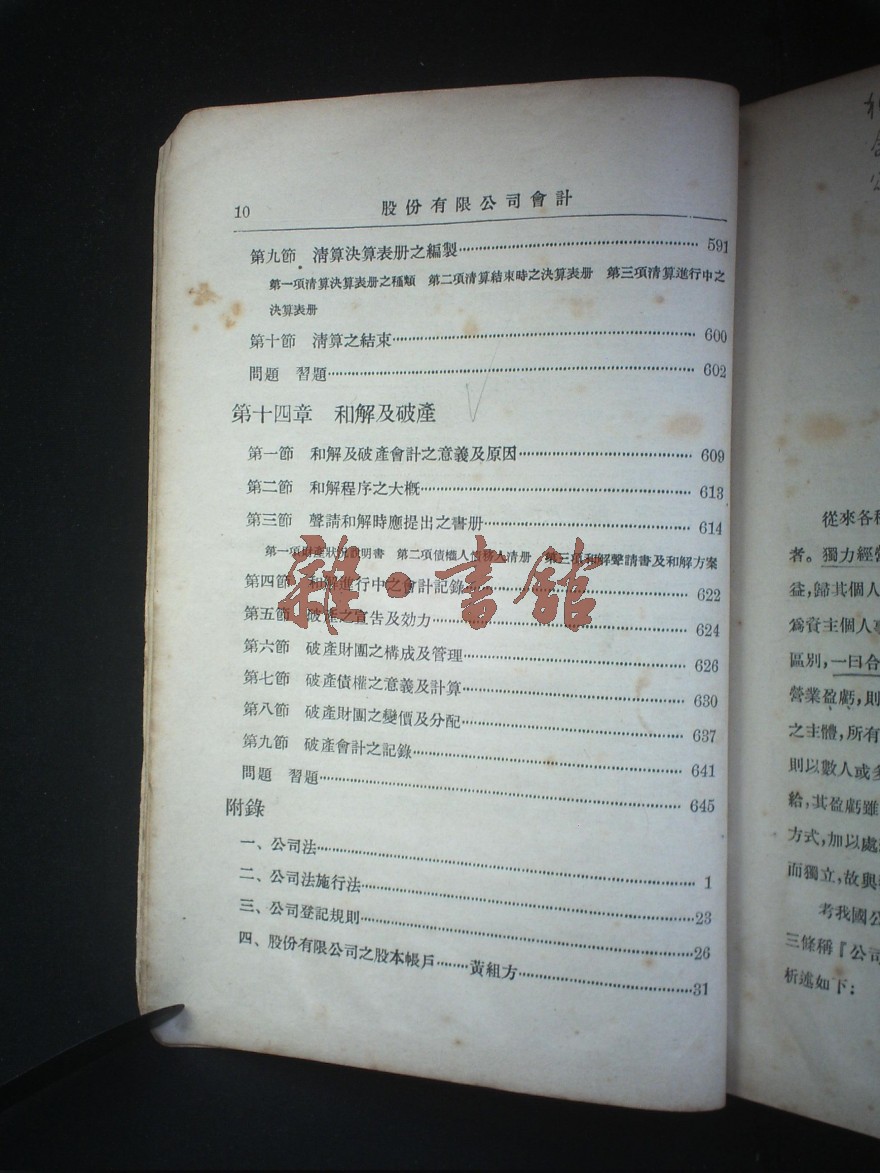 10 股份有限公司會計
第九節 清算決算表册之編製 591
第一項清算決算表册之種類 第二項清算結束時之決算表册 第三項清算進行中之
決算表册
第十節 清算之結束 600
問題 習題 602
第十四章 和解及破產
第一節 和解及破產會計之意義及原因 609
第二節 和解程序之大概 613
第三節 聲請和解時應提出之書册 614
第一項財產狀況說明書 第二項債權人債務人清册 第三項和解聲請書及和解方案
第四節 和解進行中之會計記錄 622
第五節 破產之宣告及効力 624
第六節 破產財團之構成及管理 626
第七節 破產債權之意義及計算 630
第八節 破產財團之變價及分配 637
第九節 破產會計之記錄 641
問題 習題 645
附錄
一、公司法 1
二、公司法施行法 23
三、公司登記規則 26
四、股份有限公司之股本帳戶 黃組方 31
雜·書館
從來各種
者。獨力經營
益,歸其個人
爲資主個人
區別,一曰合
營業盈虧,則
之主體,所有
則以數人或多
給,其盈虧雖
方式,加以處
而獨立,故與
考我國公
三條稱『公司
析述如下: